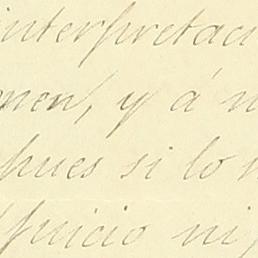 interpretaci
men, y á n
pues si lo
juicio ni